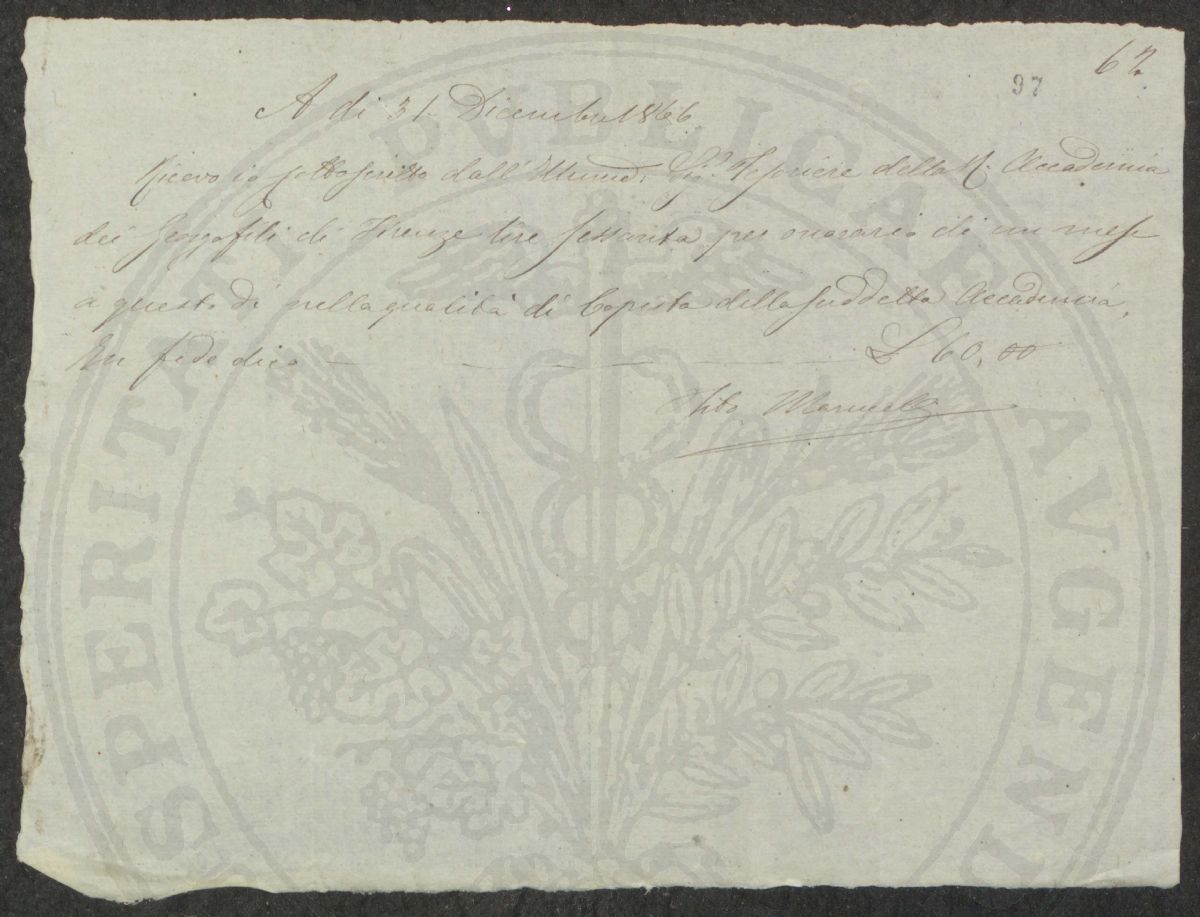 62
97
A di 31 Dicembre 1866
Ricevo io sottoscritto dall'Illmo. Sigr. Tesoriere della R. Accademia
dei Georgofili di Firenze lire sessanta per onorario di un mese
a questo dì nella qualità di Copista della suddetta Accademia,
In fede dico L 60,00
Tito
PROSPERITATI PVBLICAE AVGENDAE